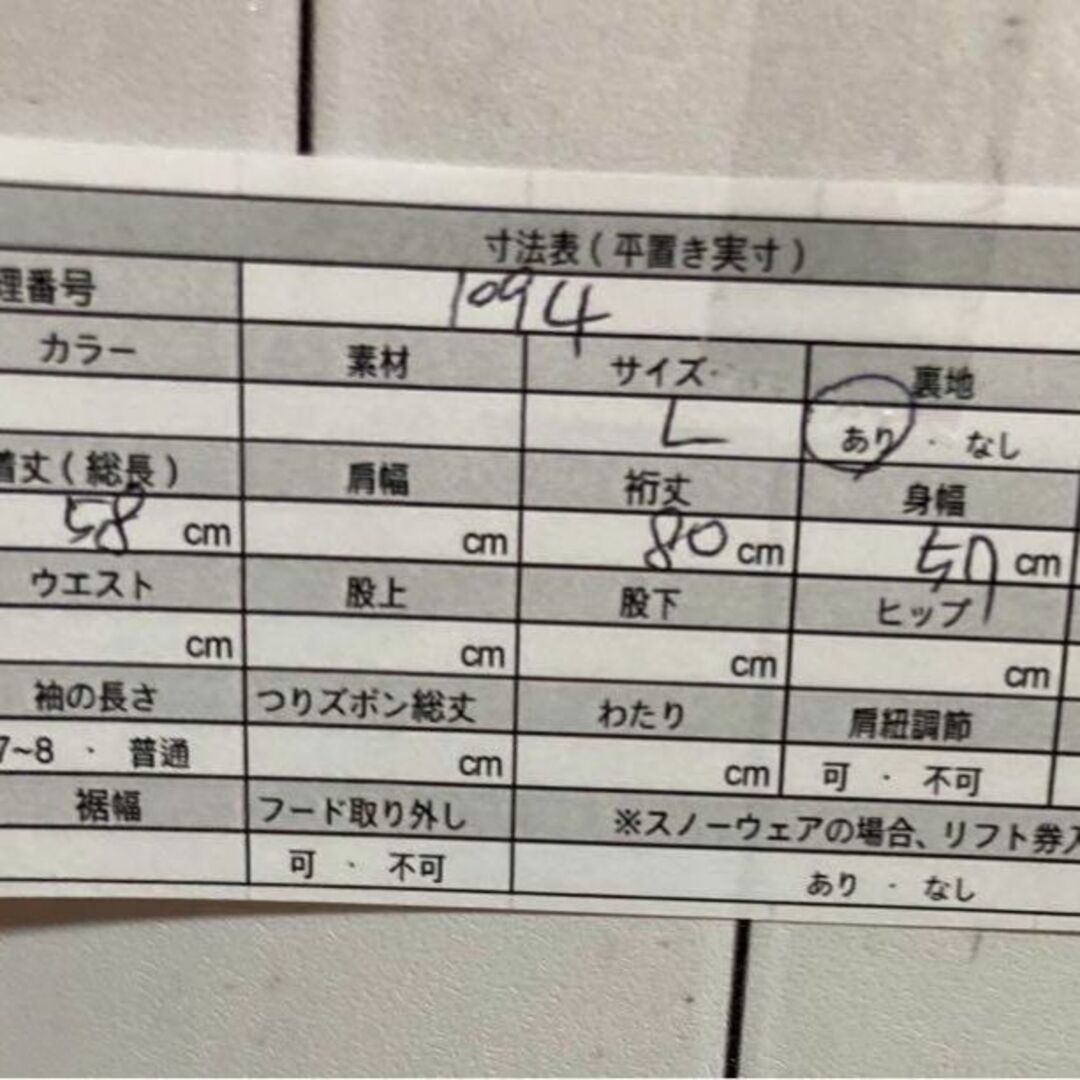 寸法表(平置き実寸)
理番号 1094
カラー 素材 サイズ 裏地
L あり・なし
着丈(総長) 肩幅 裄丈 身幅
58 cm cm 80 cm 57 cm
ウエスト 股上 股下 ヒップ
cm cm cm cm
袖の長さ つりズボン総丈 わたり 肩紐調節
7~8・普通 cm cm 可・不可
裾幅 フード取り外し ※スノーウェアの場合、リフト券入
可・不可 あり・なし